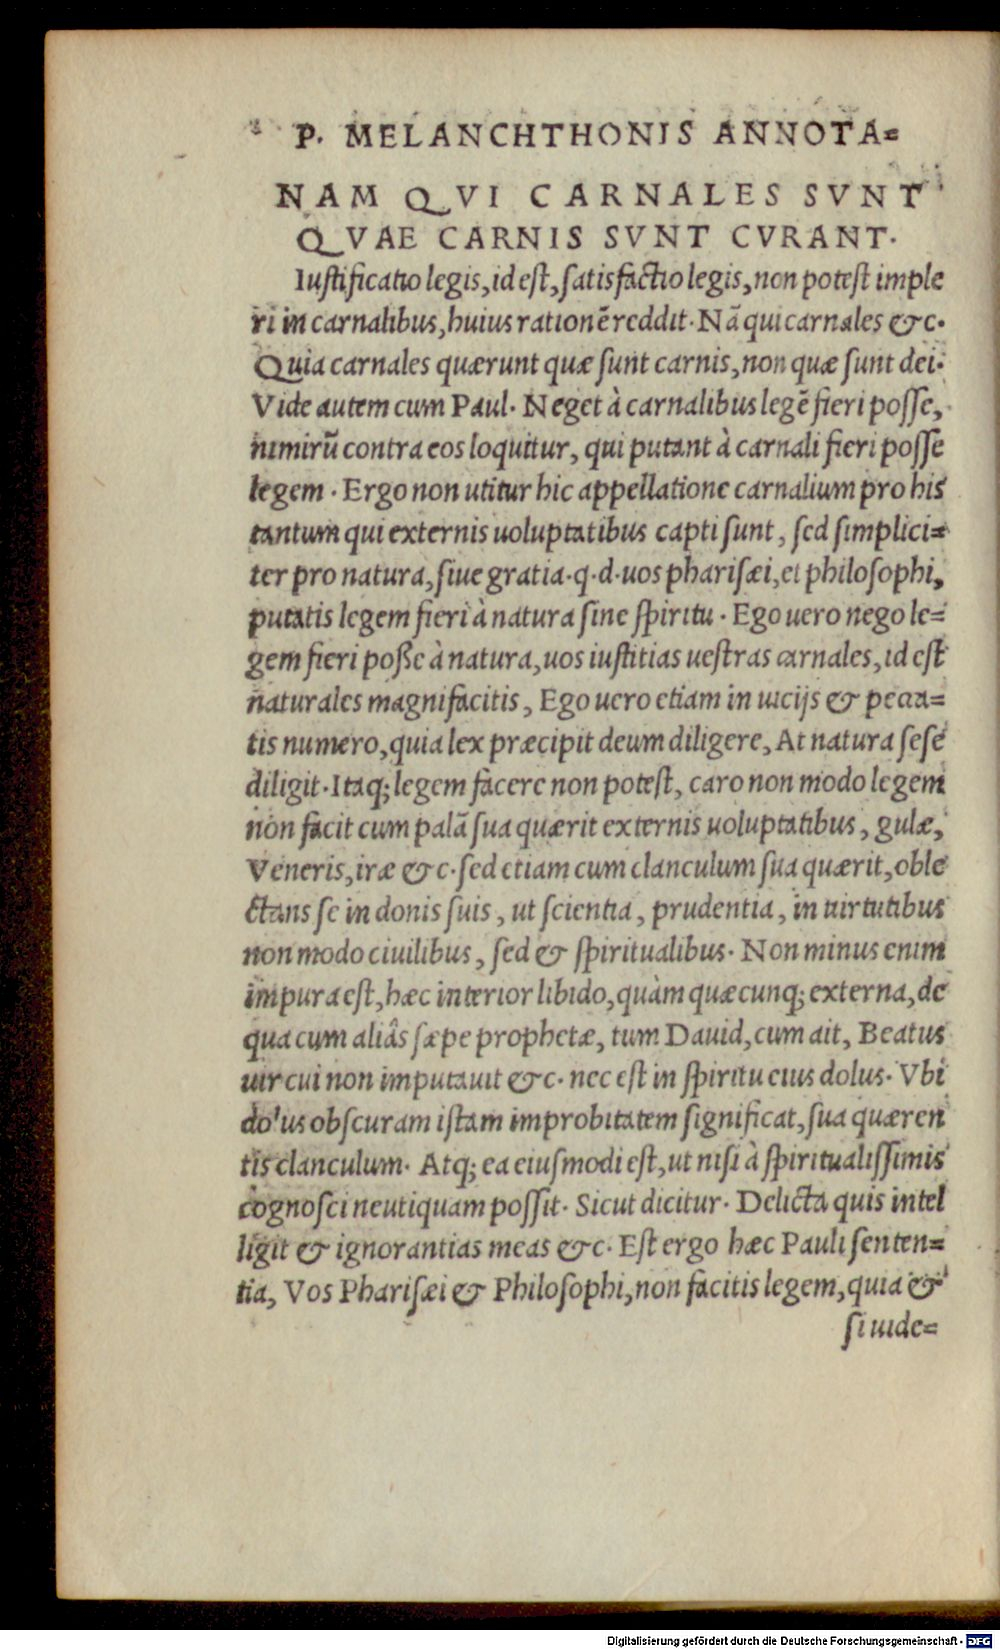 P. MELANCHTHONIS ANNOTA=
NAM QVI CARNALES SVNT
QVAE CARNIS SVNT CVRANT.
Iustificatio legis, id est, satisfactio legis, non potest imple
ri in carnalibus, huius rationẽ reddit. Nã qui carnales &c.
Quia carnales quærunt quæ sunt carnis, non quæ sunt dei.
Vide autem cum Paul. Neget à carnalibus legẽ fieri posse,
nimirũ contra eos loquitur, qui putant à carnali fieri posse
legem. Ergo non utitur hic appellatione carnalium pro his
tantum qui externis uoluptatibus capti sunt, sed simplici=
ter pro natura, siue gratia. q. d. uos pharisæi, et philosophi,
putatis legem fieri à natura sine spiritu. Ego uero nego le=
gem fieri poße à natura, uos iustitias uestras carnales, id est
naturales magnifacitis, Ego uero etiam in uicijs & pecca=
tis numero, quia lex præcipit deum diligere, At natura sese
diligit. Itaq; legem fàcere non potest, caro non modo legem
non facit cum palã sua quærit externis uoluptatibus, gulæ,
Veneris, iræ &c. sed etiam cum clanculum sua quærit, oble
ctans se in donis suis, ut scientia, prudentia, in uirtutibus
non modo ciuilibus, sed & spiritualibus. Non minus enim
impura est, hæc interior libido, quàm quæcunq; externa, de
qua cum aliâs sæpe prophetæ, tum Dauid, cum ait, Beatus
uir cui non imputauit &c. nec est in spiritu eius dolus. Vbi
dolus obscuram istam improbitatem significat, sua quæren
tis clanculum. Atq; ea eiusmodi est, ut nisi à spiritualissimis
cognosci neutiquam possit. Sicut dicitur. Delicta quis intel
ligit & ignorantias meas &c. Est ergo hæc Pauli senten=
tia, Vos Pharisæi & Philosophi, non facitis legem, quia &
si uide=
Digitalisierung gefördert durch die Deutsche Forschungsgemeinschaft - DFG